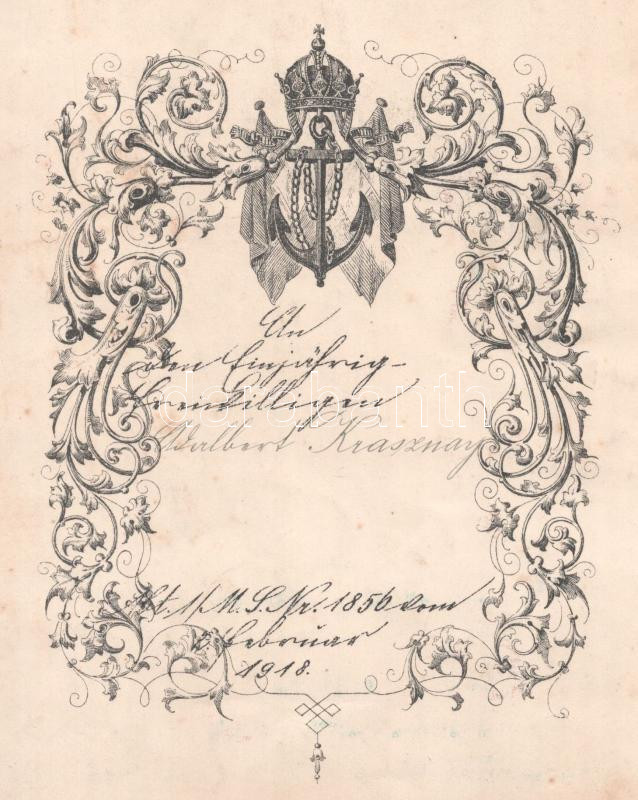 An
den Einjährig-
freiwilligen
Adalbert Krasznay
M. S. Nr. 1856 vom
Februar
1918.
darabanth